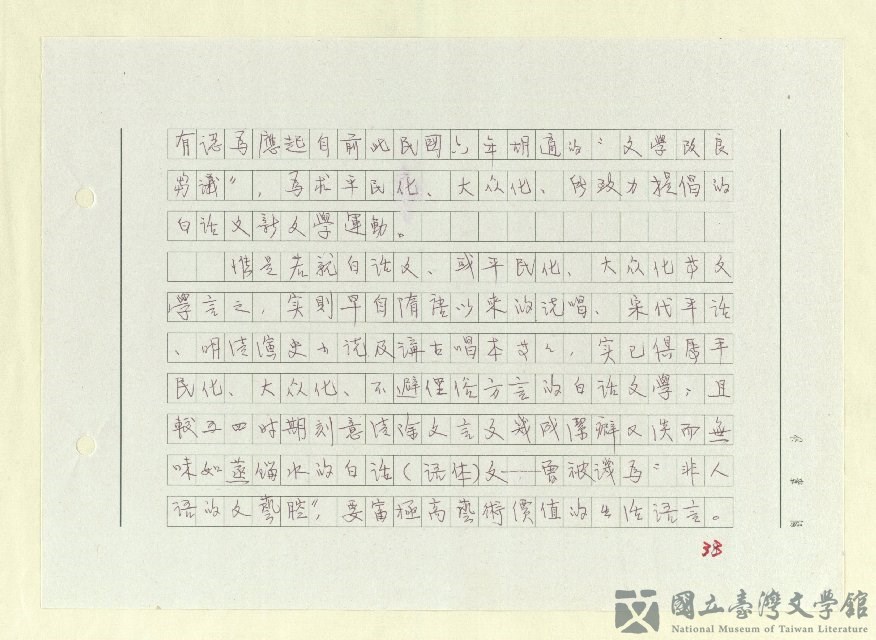 有认為應起自前此民國六年胡適的〝文學改良
芻議〞,為求平民化、大众化、所致力提倡的
白话文新文學運動。
惟是若就白话文、或平民化、大众化的文
學言之,实則早自隋唐以來的说唱、宋代平话
、明清演史小说及講古唱本等等,实已得屬平
民化、大众化、不避俚俗方言的白话文學;且
較五四时期刻意清除文言文幾成潔癖又淡而無
味如蒸馏水的白话(语体)文──曾被讥為〝非人
语的文藝腔〞,要富極高藝術價值的生活語言。
38
國立臺灣文學館
National Museum of Taiwan Literature